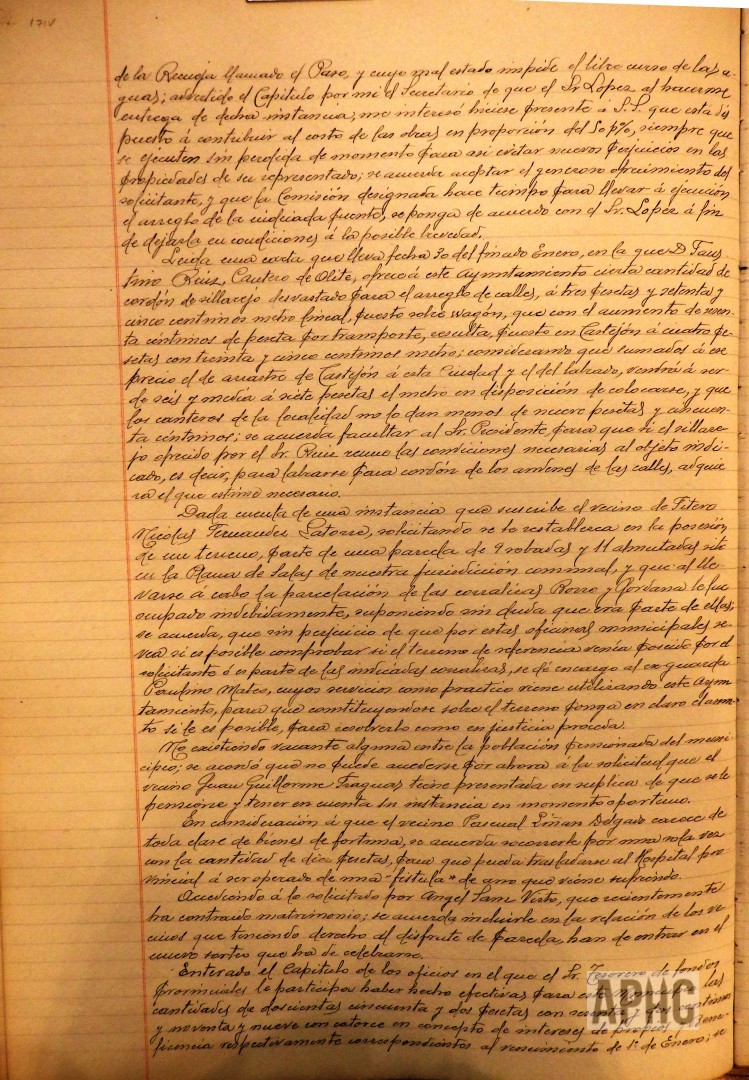 171V
de la Recueja llamado el Paso, y cuyo mal estado impide el libre curso de las a-
guas; advertido el Capítulo por mi el Secretario de que el Sr. López al hacerme
entrega de dicha instancia, me interesó hiciese presente á S.S. que está dis
puesto á contribuir al costo de las obras en proporción del 50 p%, siempre que
se ejecuten sin perdida de momento para asi evitar nuevos perjuicios en las
propiedades de su representado; se acuerda aceptar el generoso ofrecimiento del
solicitante, y que la Comisión designada hace tiempo para llevar á ejecución
el arreglo de la indiciada fuente, se ponga de acuerdo con el Sr. Lopez á fin
de dejarla en condiciones á la posible brevedad.
Leida una carta que lleva fecha 30 del finado Enero, en la que D. Faus
tino Ruiz, Cantero de Olite, ofrece á este Ayuntamiento cierta cantidad de
cordón de sillarejo desvastado para el arreglo de calles, á tres pesetas y setenta y
cinco centimos metro lineal, puesto sobre wagón, que con el aumento de sesen-
ta centimos de peseta por transporte, resulta, puesto en Castejón á cuatro pe-
setas con treinta y cinco centimos metro; considerando que sumados á ese
precio el de arrastre de Castejón á esta Ciudad y el del labrado, vendrá á ser
de seis y media á siete pesetas el metro en disposición de colocarse, y que
los canteros de la localidad no lo dan menos de nueve pesetas y cincuen-
ta centimos; se acuerda facultar al Sr. Presidente, para que si el sillare-
jo ofrecido por el Sr. Ruiz reune las condiciones necesarias al objeto indi-
cado, es decir, para labrarse para cordón de los andenes de las calles, adquie
ra el que estime necesario.
Dada cuenta de una instancia que suscribe el vecino de Fitero
Nicolás Fernandez Latorre, solicitando se le restablezca en la posesión
de un terreno, parte de una parcela de 9 robadas y 11 almutadas sito
en la Plana de Salas de nuestra jurisdicción comunal, y que al lle
varse á cabo la parcelación de las corralizas Rozo y Gordana le fue
ocupado indebidamente, suponiendo sin duda que era parte de ellas;
se acuerda, que sin perjuicio de que por estas oficinas municipales se
vea si es posible comprobar si el terreno de referencia venia poseido por el
solicitante ó es parte de las indicadas corralizas, se dé encargo al ex-guarda
Paulino Mateo, cuyos servicios como practico viene utilizando este Ayun-
tamiento, para que constituyendose sobre el terreno ponga en claro el asun-
to si le es posible, para resolverlo como en justicia proceda.
No existiendo vacante alguna entre la población pensionada del muni-
cipio; se acordó que no puede accederse por ahora á la solicitud que el
vecino Juan Guillorme Fraguas tiene presentada en suplica de que se le
pensione y tener en cuenta su instancia en momento oportuno.
En consideración á que el vecino Pascual Liñan Delgado carece de
toda clase de bienes de fortuna, se acuerda socorrerle por una sola vez
con la cantidad de diez pesetas, para que pueda trasladarse al Hospital pro
vincial á ser operado de una "fistula" de ano que viene sufriendo.
Accediendo á lo solicitado por Angel Sanz Virto, que recientemente
ha contraido matrimonio; se acuerda incluirle en la relación de los ve
cinos que teniendo derecho al disfrute de parcela, han de entrar en el
nuevo sorteo que ha de celebrarse.
Enterado el Capítulo de los oficios en el que el Sr. Tesorero de fondos
provinciales le participa haber hecho efectivas para este las
cantidades de doscientas cincuenta y dos pesetas con centimos
y noventa y nueve con catorce en concepto de intereses de propios Bene-
ficencia respectivamente correspondientes al vencimiento de 1º de Enero; se
APHG